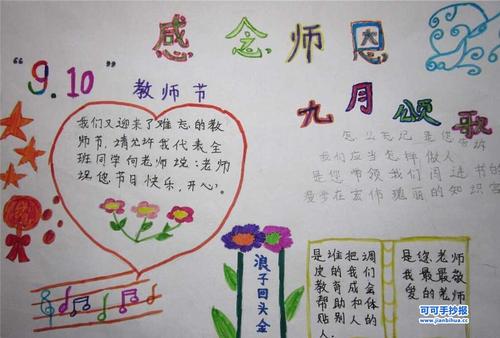 感念师恩
九月颂歌
“9.10”
教师节
我们又迎来了难忘的教
师节,请允许我代表全
班同学向老师说:老师
祝您节日快乐,开心。
怎么忘记 是您告诉
我们应当怎样做人
是您带领我们闯进书的
遨游在宏伟瑰丽的知识宫
浪子回头金
是谁把调
皮的我们
教育成会
帮助和体
贴别人的人
是您,老师
我最最敬
爱的老师
可可手抄报
www.jianbihua.cc